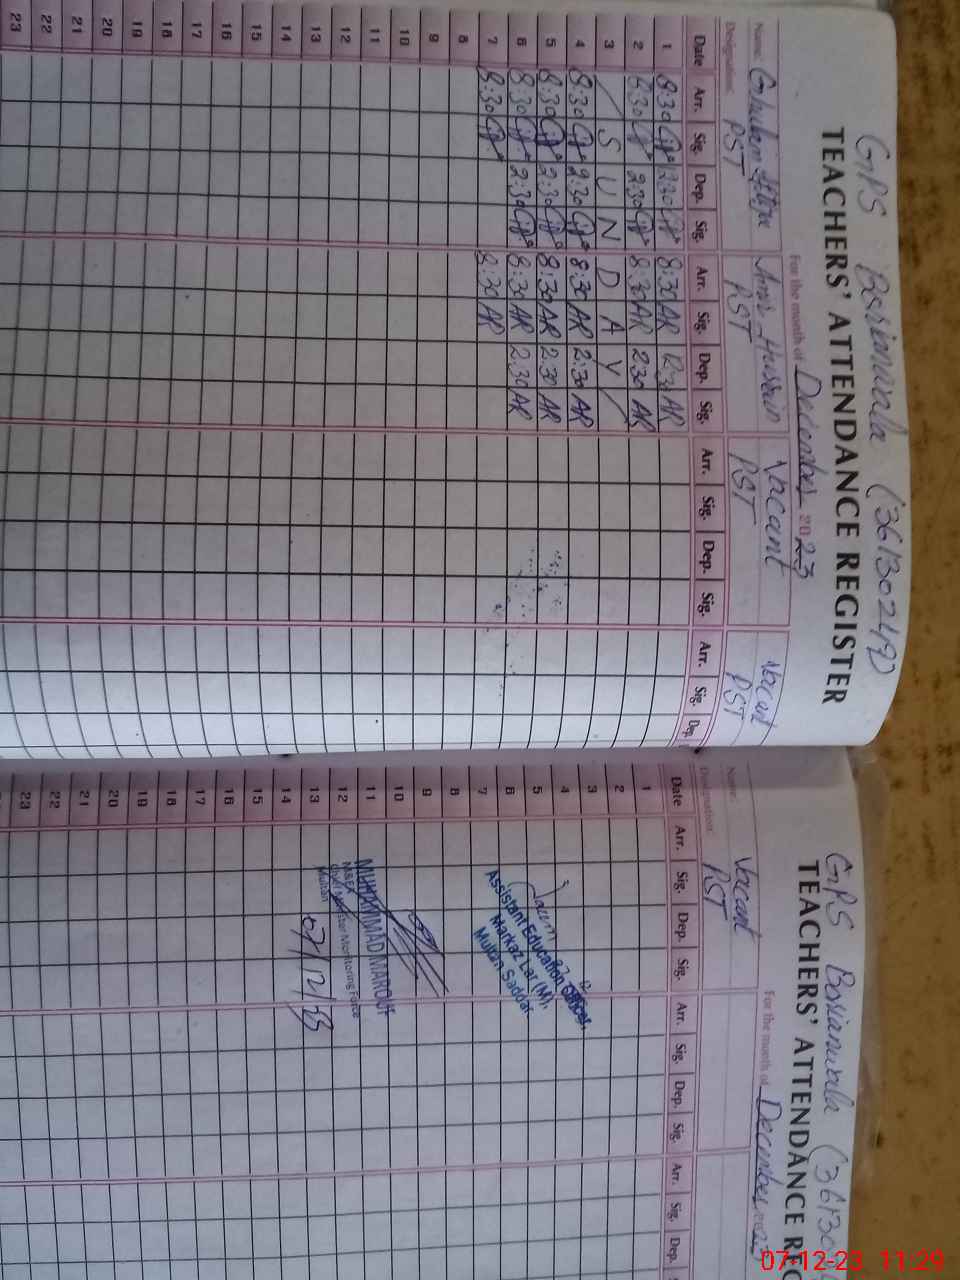 GPS (36130249)
TEACHERS' ATTENDANCE REGISTER
For the month of December 2023
Name: Ghulam Amir Hussain Vacant Vacant
Designation: PST PST PST PST
Date Arr. Sig. Dep. Sig. Arr. Sig. Dep. Sig. Arr. Sig. Dep. Sig. Arr. Sig. Dep.
1 8:30 12:30 8:30 AR 12:30 AR
2 8:30 2:30 8:30 AR 2:30 AR
3 S U N D A Y
4 8:30 2:30 8:30 AR 2:30 AR
5 8:30 2:30 8:30 AR 2:30 AR
6 8:30 2:30 8:30 AR 2:30 AR
7 8:30 8:30 AR
8
9
10
11
12
13
14
15
16
17
18
19
20
21
22
23
GPS (36130
TEACHERS' ATTENDANCE REG
For the month of December
Name: Vacant
Designation: PST
Date Arr. Sig. Dep. Sig. Arr. Sig. Dep. Sig. Arr. Sig. Dep.
1
2
3
4
5
6
7
8
9
10
11
12
13
14
15
16
17
18
19
20
21
22
23
Assistant Education Officer
Markaz Lar (M),
Multan Saddar
MUHAMMAD MAROUF
M&EA
Chief Minister Monitoring Force
Multan
07/12/23
07-12-23 11:29